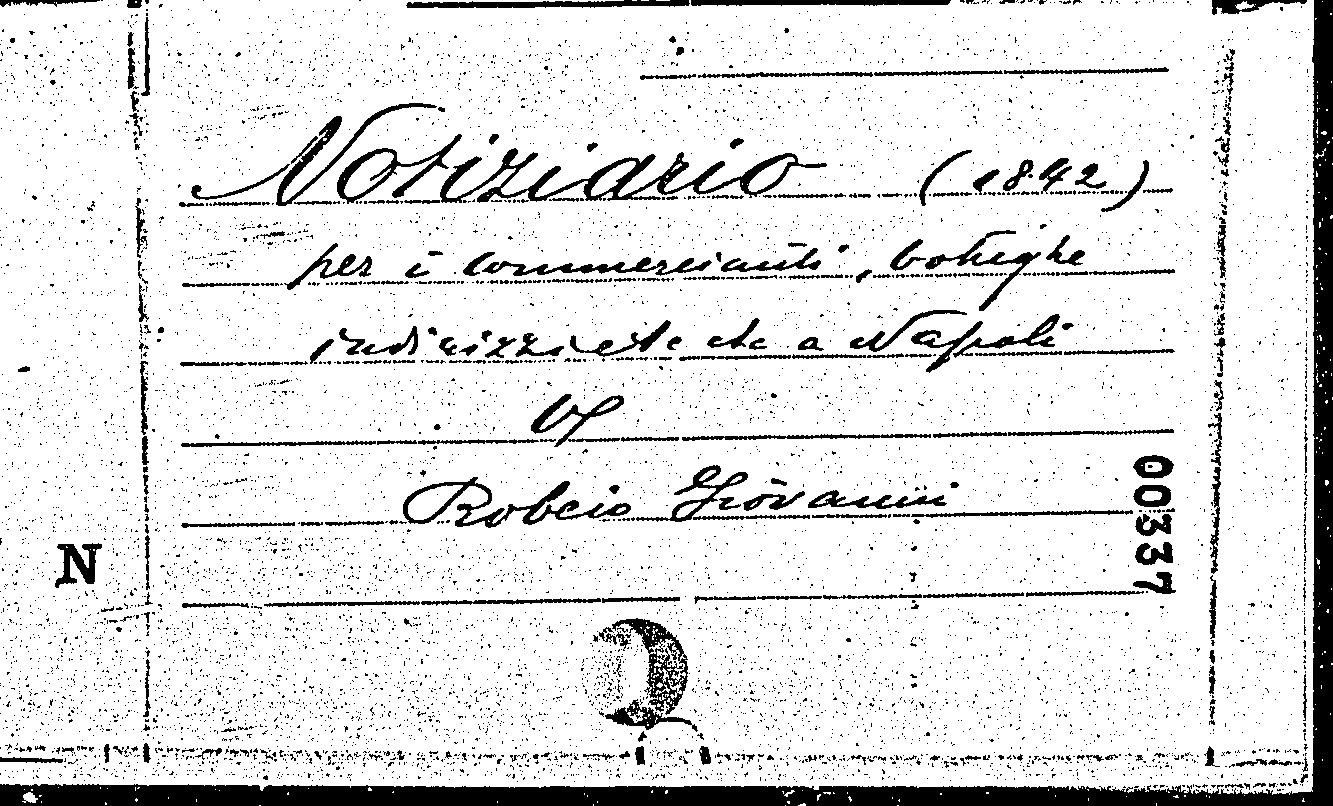 Notiziario (1842)
per i commercianti, botteghe
indirizzi etc etc a Napoli
Robcio Giovanni
N
00337